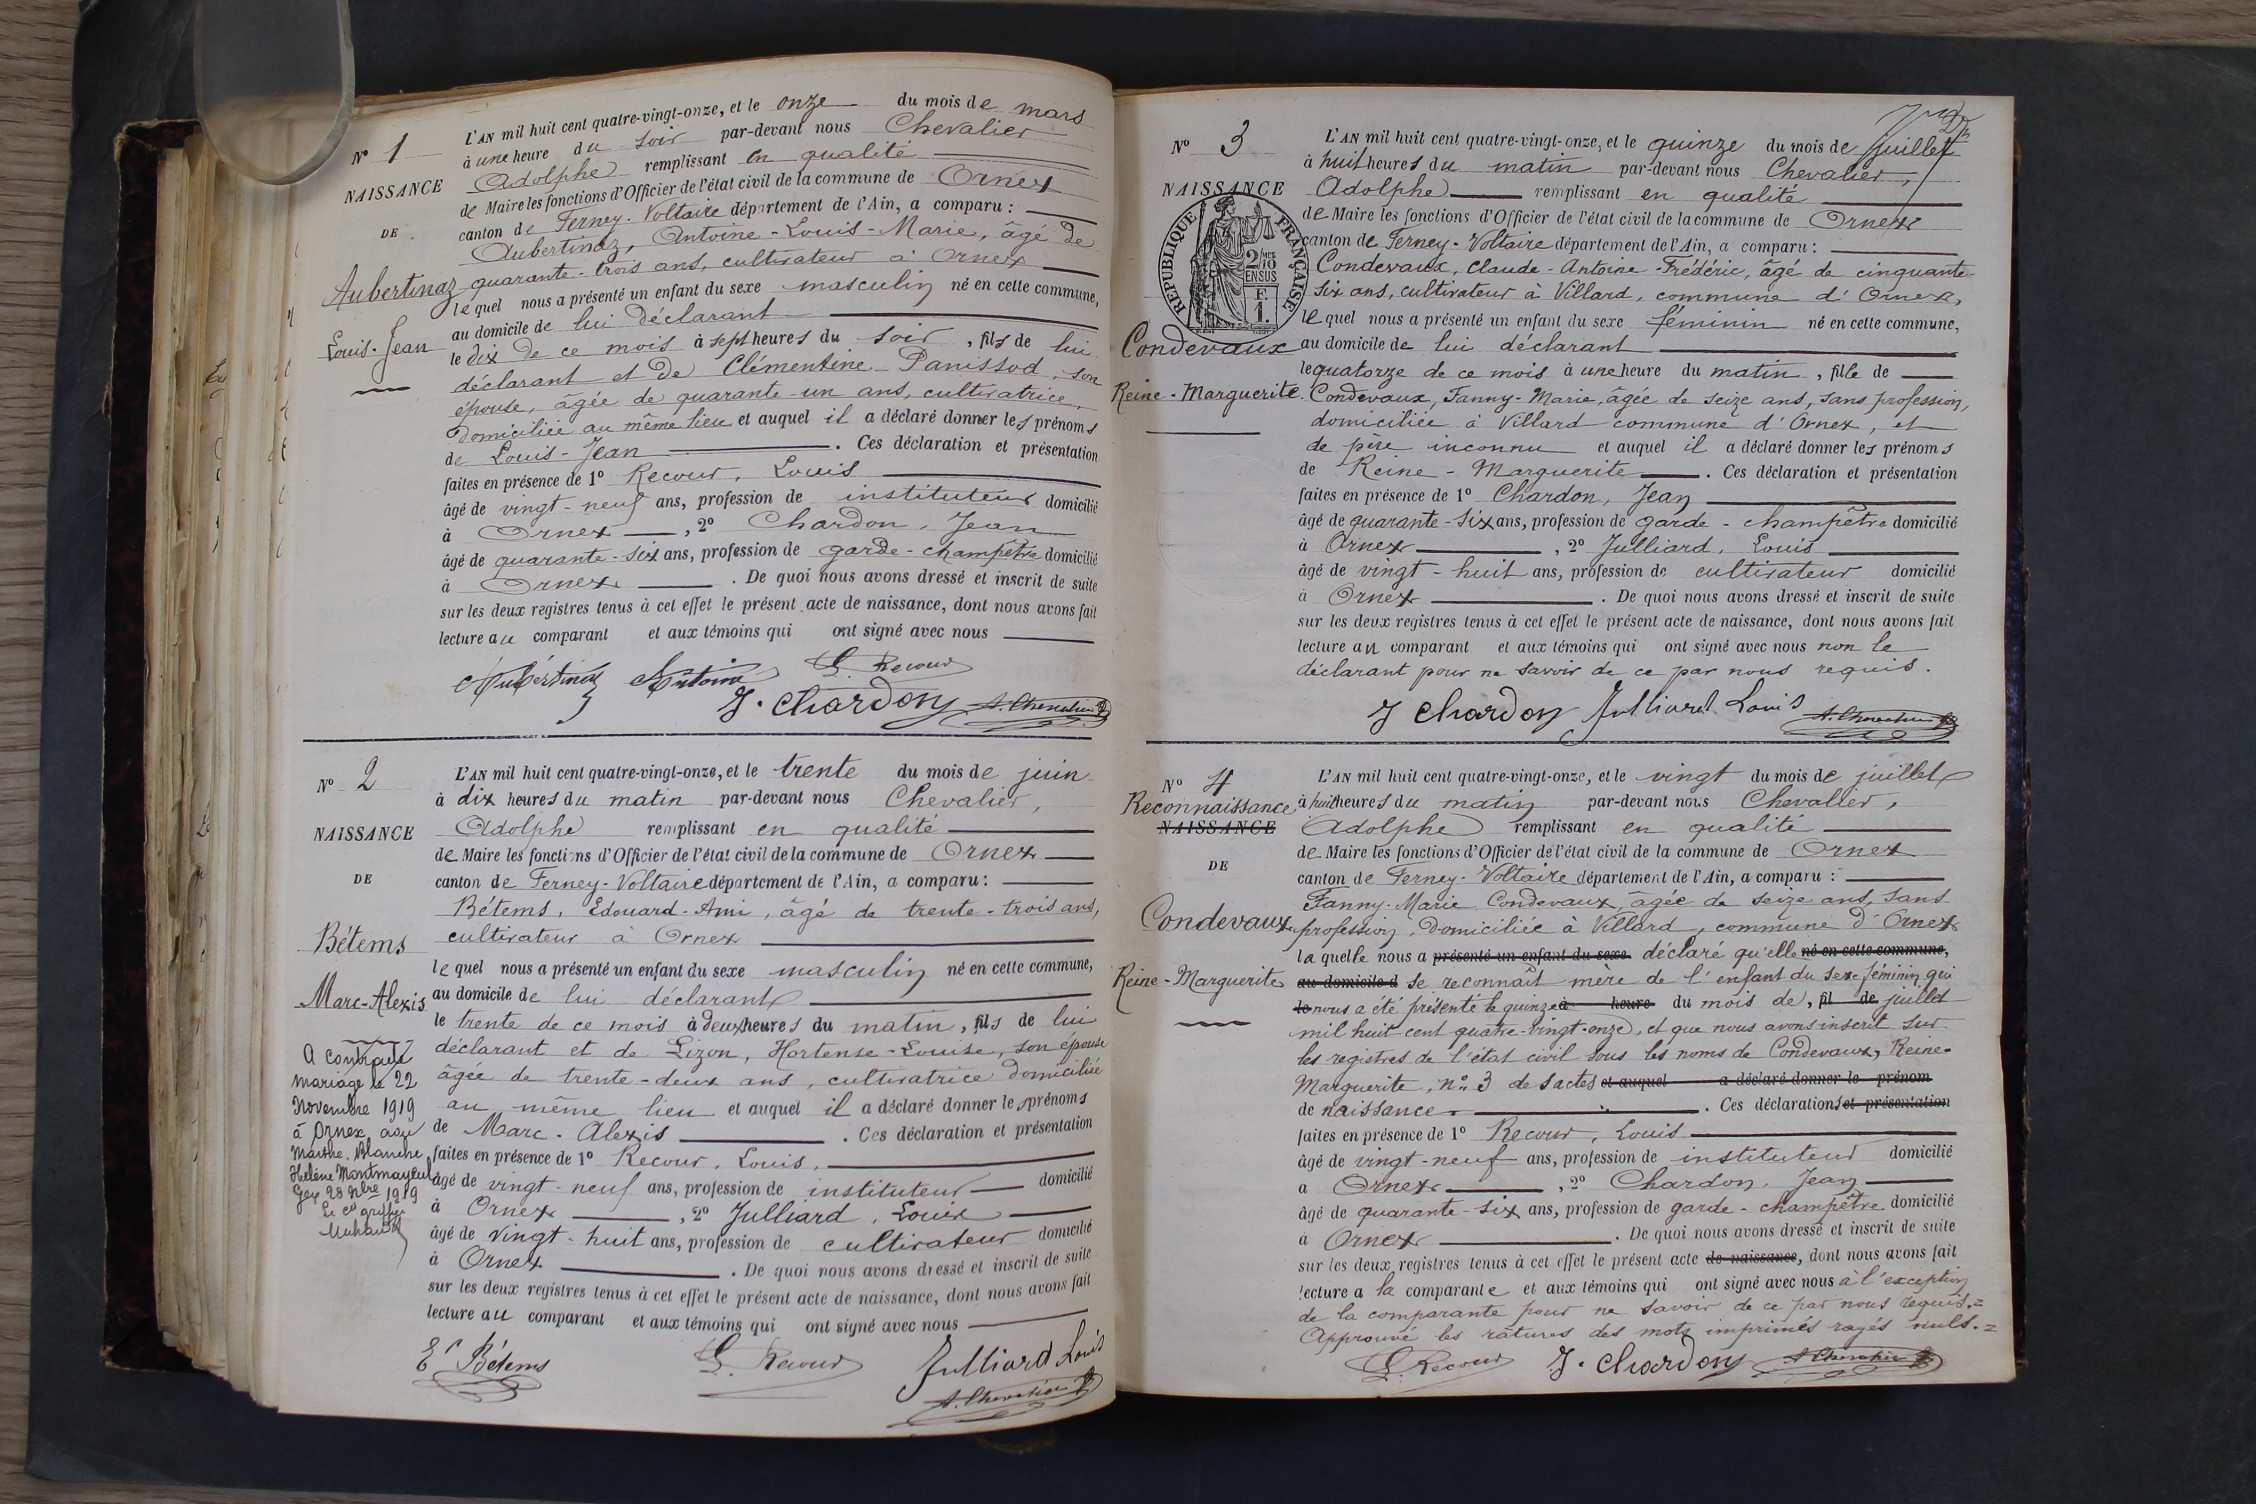 Nº 1
NAISSANCE
DE
Aubertinaz
Louis-Jean
L'AN mil huit cent quatre-vingt-onze, et le onze du mois de mars
à une heure du soir par-devant nous Chevalier
Adolphe remplissant en qualité
de Maire les fonctions d'Officier de l'état civil de la commune de Ornex
canton de Ferney-Voltaire département de l'Ain, a comparu :
Aubertinaz, Antoine-Louis-Marie, âgé de
quarante-trois ans, cultivateur à Ornex
lequel nous a présenté un enfant du sexe masculin né en cette commune,
au domicile de lui déclarant
le dix de ce mois à sept heures du soir, fils de lui
déclarant et de Clémentine Panissod, son
épouse, âgée de quarante-un ans, cultivatrice,
domiciliée au même lieu et auquel il a déclaré donner les prénoms
de Louis-Jean . Ces déclaration et présentation
faites en présence de 1º Recour, Louis
âgé de vingt-neuf ans, profession de instituteur domicilié
à Ornex , 2º Chardon, Jean
âgé de quarante-six ans, profession de garde-champêtre domicilié
à Ornex . De quoi nous avons dressé et inscrit de suite
sur les deux registres tenus à cet effet le présent acte de naissance, dont nous avons fait
lecture au comparant et aux témoins qui ont signé avec nous
Aubertinaz Antoine L. Recour
J. Chardon A. Chevalier
Nº 2
NAISSANCE
DE
Bétems
Marc-Alexis
A contracté
mariage le 22
Novembre 1919
à Ornex avec
Marthe Blanche
Hélène Montmayeul
Gex 28 9bre 1919
Le cis greffier
L'AN mil huit cent quatre-vingt-onze, et le trente du mois de juin
à dix heures du matin par-devant nous Chevalier,
Adolphe remplissant en qualité
de Maire les fonctions d'Officier de l'état civil de la commune de Ornex
canton de Ferney-Voltaire département de l'Ain, a comparu :
Bétems, Edouard-Ami, âgé de trente-trois ans,
cultivateur à Ornex
lequel nous a présenté un enfant du sexe masculin né en cette commune,
au domicile de lui déclarant
le trente de ce mois à deux heures du matin, fils de lui
déclarant et de Lizon, Hortense-Louise, son épouse
âgée de trente-deux ans, cultivatrice domiciliée
au même lieu et auquel il a déclaré donner les prénoms
de Marc-Alexis . Ces déclaration et présentation
faites en présence de 1º Recour, Louis,
âgé de vingt-neuf ans, profession de instituteur domicilié
à Ornex , 2º Julliard, Louis
âgé de vingt-huit ans, profession de cultivateur domicilié
à Ornex . De quoi nous avons dressé et inscrit de suite
sur les deux registres tenus à cet effet le présent acte de naissance, dont nous avons fait
lecture au comparant et aux témoins qui ont signé avec nous
Ed Bétems L. Recour Julliard Louis
A. Chevalier
Nº 3
NAISSANCE
RÉPUBLIQUE FRANÇAISE
2/10 MES
EN SUS
F.
1.
Condevaux
Reine-Marguerite
L'AN mil huit cent quatre-vingt-onze, et le quinze du mois de juillet
à huit heures du matin par-devant nous Chevalier,
Adolphe remplissant en qualité
de Maire les fonctions d'Officier de l'état civil de la commune de Ornex
canton de Ferney-Voltaire département de l'Ain, a comparu :
Condevaux, Claude-Antoine-Frédéric, âgé de cinquante-
six ans, cultivateur à Villard, commune d'Ornex,
lequel nous a présenté un enfant du sexe féminin né en cette commune,
au domicile de lui déclarant
le quatorze de ce mois à une heure du matin, fille de
Condevaux, Fanny-Marie, âgée de seize ans, sans profession,
domiciliée à Villard commune d'Ornex, et
de père inconnu et auquel il a déclaré donner les prénoms
de Reine-Marguerite . Ces déclaration et présentation
faites en présence de 1º Chardon, Jean
âgé de quarante-six ans, profession de garde-champêtre domicilié
à Ornex , 2º Julliard, Louis
âgé de vingt-huit ans, profession de cultivateur domicilié
à Ornex . De quoi nous avons dressé et inscrit de suite
sur les deux registres tenus à cet effet le présent acte de naissance, dont nous avons fait
lecture au comparant et aux témoins qui ont signé avec nous non le
déclarant pour ne savoir de ce par nous requis.
J Chardon Julliard Louis A. Chevalier
Nº 4
Reconnaissance
NAISSANCE
DE
Condevaux
Reine-Marguerite
L'AN mil huit cent quatre-vingt-onze, et le vingt du mois de juillet
à huit heures du matin par-devant nous Chevalier,
Adolphe remplissant en qualité
de Maire les fonctions d'Officier de l'état civil de la commune de Ornex
canton de Ferney-Voltaire département de l'Ain, a comparu :
Fanny-Marie Condevaux, âgée de seize ans, sans
profession, domiciliée à Villard, commune d'Ornex
laquelle nous a présenté un enfant du sexe déclaré qu'elle né en cette commune,
au domicile d se reconnaît mère de l'enfant du sexe féminin qui
le nous a été présenté le quinze à heure du mois de, fil de juillet
mil huit cent quatre-vingt-onze, et que nous avons inscrit sur
les registres de l'état civil sous les noms de Condevaux, Reine-
Marguerite, nº 3 des actes et auquel a déclaré donner le prénom
de naissance . Ces déclarations et présentation
faites en présence de 1º Recour, Louis
âgé de vingt-neuf ans, profession de instituteur domicilié
à Ornex , 2º Chardon, Jean
âgé de quarante-six ans, profession de garde-champêtre domicilié
à Ornex . De quoi nous avons dressé et inscrit de suite
sur les deux registres tenus à cet effet le présent acte de naissance, dont nous avons fait
lecture a la comparante et aux témoins qui ont signé avec nous à l'exception
de la comparante pour ne savoir de ce par nous requis.=
Approuvé les ratures des mots imprimés rayés nuls.=
L. Recour J. Chardon A. Chevalier